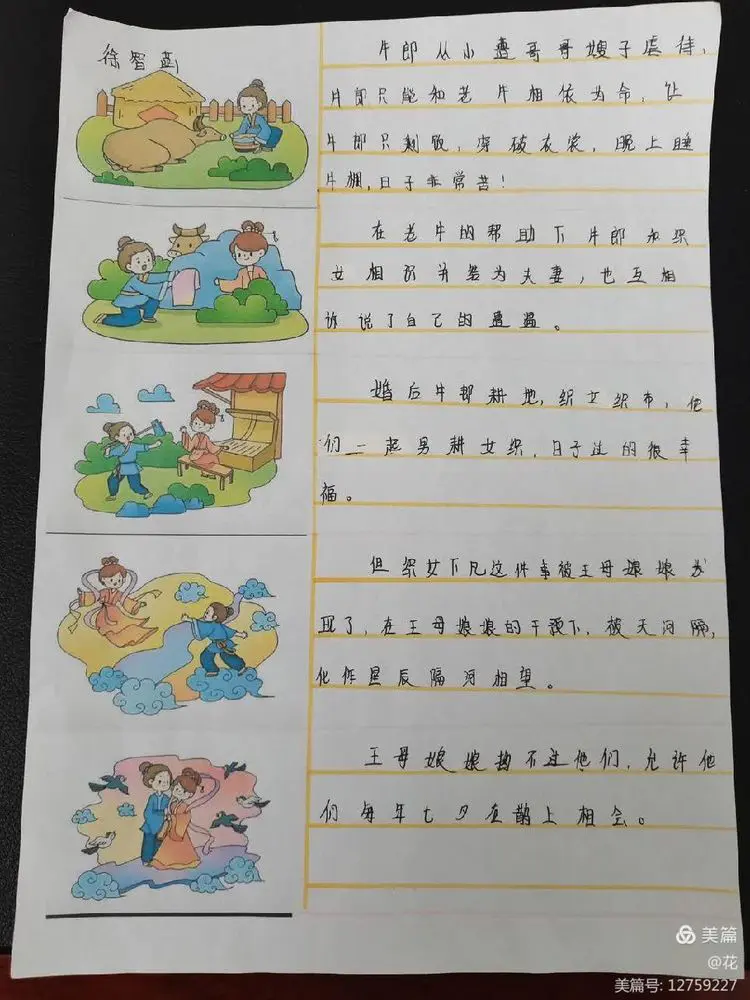 徐智菡
牛郎从小遭哥哥嫂子虐待,
牛郎只能和老牛相依为命,让
牛郎只剩饭,穿破衣裳,晚上睡
牛棚,日子非常苦!
在老牛的帮助下牛郎和织
女相识并结为夫妻,也互相
诉说了自己的遭遇。
婚后牛郎耕地,织女织布,他
们一起男耕女织,日子过的很幸
福。
但织女下凡这件事被王母娘娘发
现了,在王母娘娘的干预下,被天河隔,
化作星辰隔河相望。
王母娘娘拗不过他们,允许他
们每年七夕在鹊上相会。
美篇
@花
美篇号: 12759227